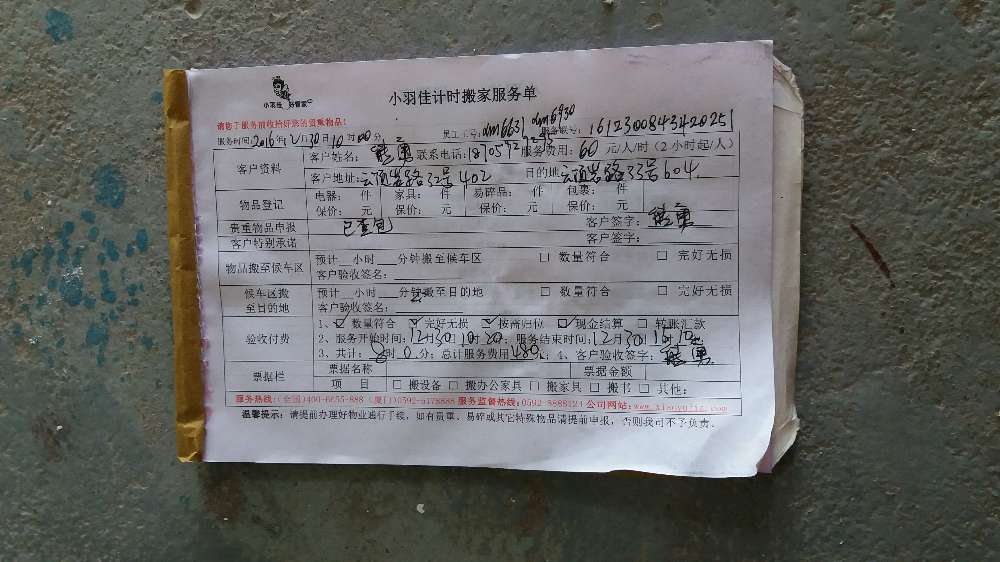 小羽佳 好管家
小羽佳计时搬家服务单
请您于服务前收拾好您的贵重物品!
服务时间:2016年12月30日10时00分 员工工号:dm6631 dm6930 服务账号:1612300843420251
客户资料 客户姓名:熊勇 联系电话: 服务费用:60元/人/时(2小时起/人)
客户地址:云顶岩路32号402 目的地:云顶岩路33号604
物品登记 电器: 件 家具: 件 易碎品: 件 包裹: 件
保价: 元 保价: 元 保价: 元 保价: 元
贵重物品申报 已查包 客户签字:熊勇
客户特别承诺 客户签字:
物品搬至候车区 预计__小时___分钟搬至候车区 □ 数量符合 □ 完好无损
客户验收签名:
候车区搬至目的地 预计__小时___分钟搬至目的地 □ 数量符合 □ 完好无损
客户验收签名:
验收付费 1、☑ 数量符合 ☑ 完好无损 ☑ 按需归位 ☑ 现金结算 □ 转账汇款
2、服务开始时间:12月30日10时20;服务结束时间:12月30日16时10
3、共计:8时0分;总计服务费用480;4、客户验收签字:熊勇
票据栏 票据名称 票据金额
项 目 □ 搬设备 □ 搬办公家具 □ 搬家具 □ 搬书 □ 其他:
服务热线:(全国)400-6655-888 (厦门)0592-5178888 服务监督热线:0592-8888124 公司网站:www.xiaoyujia.com
温馨提示:请提前办理好物业通行手续,如有贵重、易碎或其它特殊物品请提前申报,否则我司不予负责。